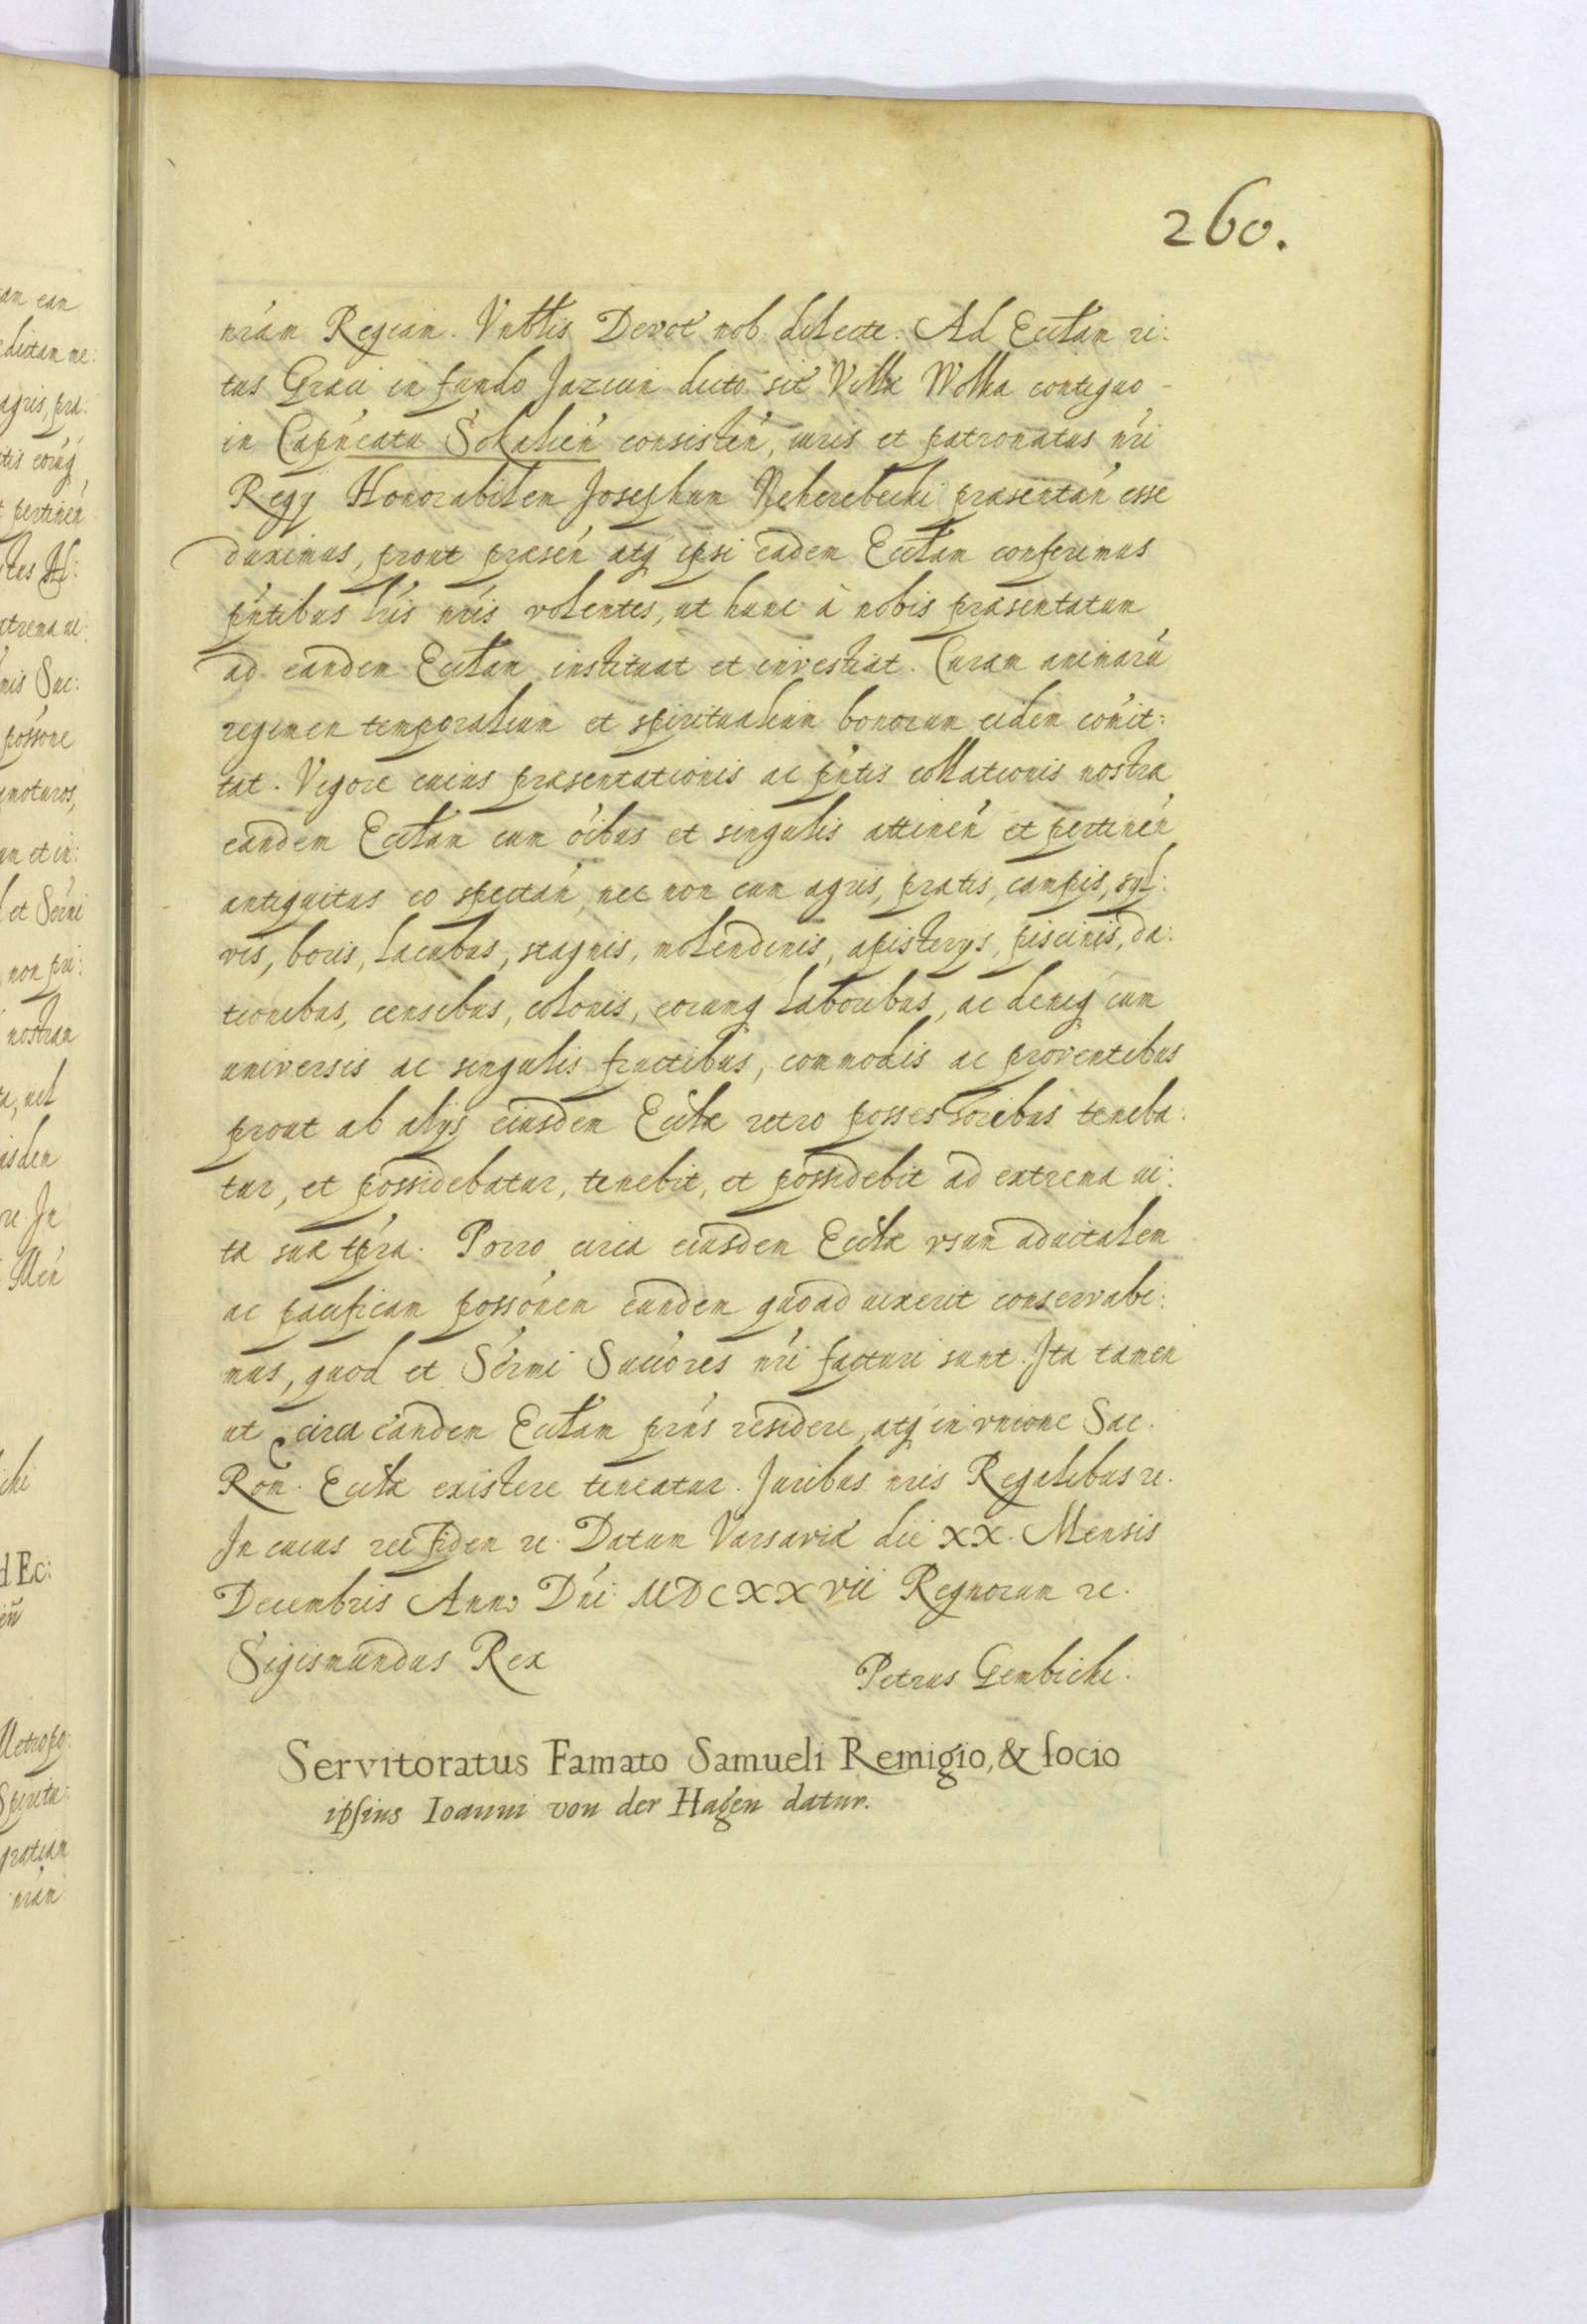 260.
nr̃am Regiam. Vnblis Devoť nob. dilecte. Ad Ecclam ri:
tus Græci in fundo Jazcuin dicto sit Villæ Wolka contiguo -
in Capn̄eatu Sokalień consisteń, iuris et patronatus nr̃i
Regÿ Honorabilem Josephum Neherebecki præsentań esse
duximus, prout præseń atq ipsi eadem Ecclam conferimus
pñtibus lr̃is nr̃is volentes, ut hunc à nobis præsentatum
ad eandem Ecclam instituat et investiat. Curam animarũ
regimen temporalium et spiritualium bonorum eidem com̃it:
tat. Vigore cuius præsentationis ac pñtis collationis nostræ
eandem Ecclam cum õibus et singulis attineń et pertineń
antiquitus eo spectań, nec non cum agris, pratis, campis, syl:
vis, boris, lacubus, stagnis, molendinis, apisterÿs, piscinis, da:
tionibus, censibus, colonis, eorumq laboribus, ac deniq cum
universis ac singulis fructibus, commodis ac proventibus
prout ab alÿs eiusdem Ecclæ retro possessoribus teneba:
tur, et possidebatur, tenebit, et possidebit ad extrema ui:
tæ suæ tp̃ra. Porro circa eiusdem Ecclæ vsum aduitalem
ac pacificam possõnem eundem quoad uixerit conservabi:
mus, quod et Sẽrmi Succõres nr̃i facturi sunt. Ita tamen
ut circa eandem Ecclam prñs residere, atq in vnione Sac.
Rom. Ecclæ existere teneatur. Juribus nr̃is Regalibus zc.
In cuius rei fidem zc. Datum Varsaviæ die XX. Mensis
Decembris Anno Dñi MDCXXvii Regnorum zc.
Sigismundus Rex Petrus Gembicki.
Servitoratus Famato Samueli Remigio, & socio
ipsius Ioanni von der Hagen datur.